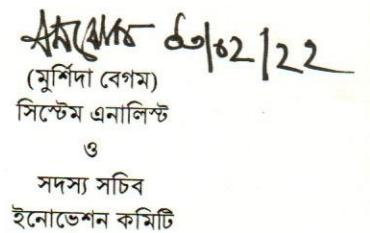 (মুর্শিদা বেগম)
সিস্টেম এনালিস্ট
ও
সদস্য সচিব
ইনোভেশন কমিটি